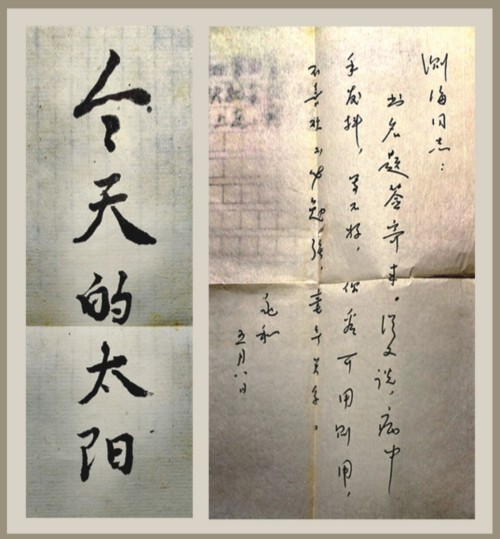 今天的太阳
渊海同志：
书名题签寄来。从文说，病中
手发抖，写不好，你看可用则用，
不喜欢不必勉强，毫无关系。
兆和
五月八日